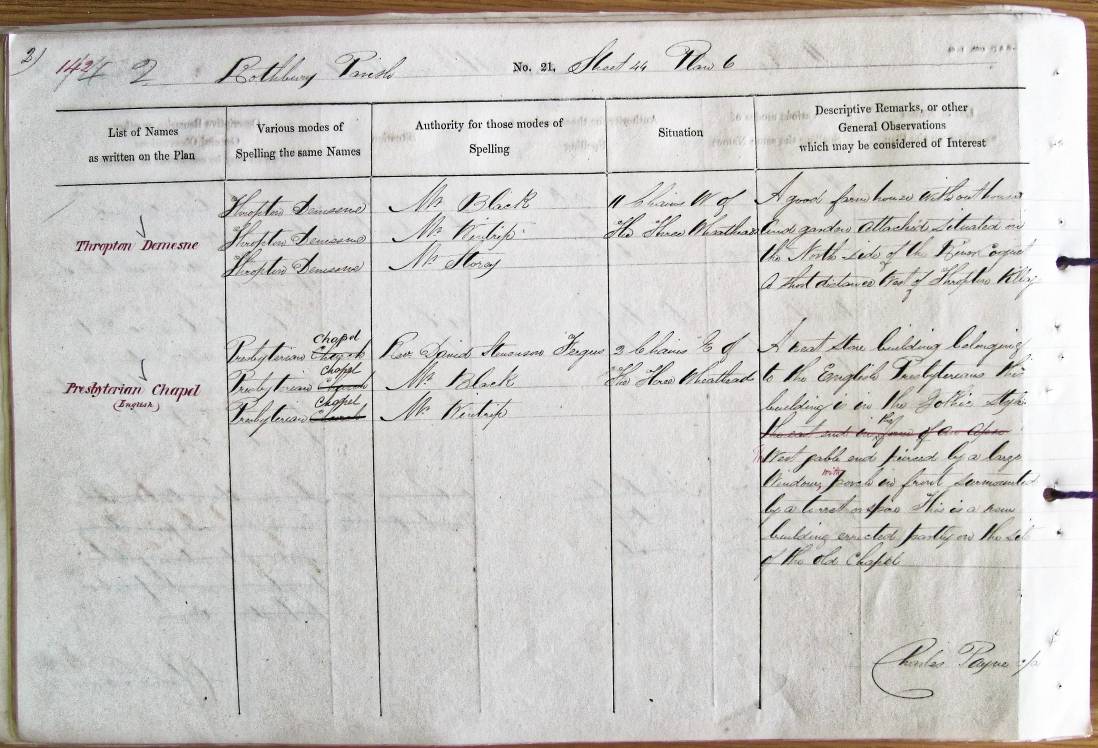 2)
142 2 Rothbury Parish No. 21, Sheet 44 Plan 6
List of Names
as written on the Plan
Various modes of
Spelling the same Names
Authority for those modes of
Spelling
Situation
Descriptive Remarks, or other
General Observations
which may be considered of Interest
Thropton Demesne
Thropton Demesne
Thropton Demesne
Thropton Demesne
Mr. Black
Mr. Wintrip
Mr. Storey
11 Chains W of
The Three Wheathead
A good farm house with out houses
and garden attached situated on
the North side of the River Coquet
A short distance West of Thropton Village
Presbyterian Chapel
(English)
Presbyterian Church Chapel
Presbyterian Church Chapel
Presbyterian Church Chapel
Rev. David Stevenson Fergus
Mr. Black
Mr. Wintrip
2 Chains E of
The Three Wheathead
A neat stone building belonging
to the English Presbyterians this
building is in the Gothic Style
the east end in the form of an apse
The West gable end pierced by a large
Window, with porch in front surmounted
by a turret or spire This is a new
building errected partly on the site
of the old Chapel
Charles Payne c/a